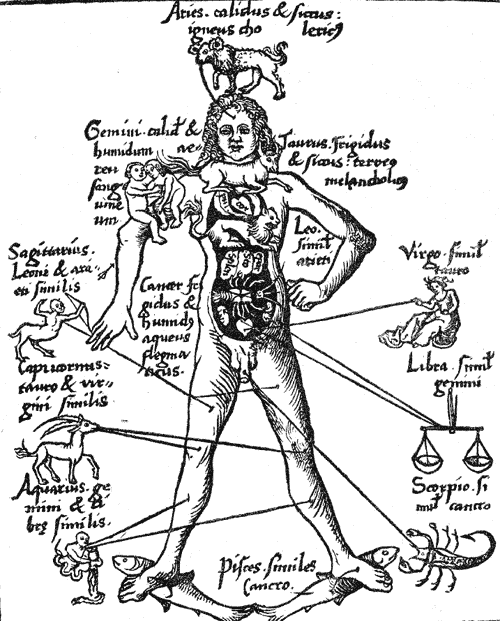 Aries. calidus & siccus:
igneus cho lericꝰ
Gemini. calid⁹ &
humidum ae-
reu
sang
uine
um
Taurus. frigidus
& siccus: terreꝰ
melancholicꝰ
Leo.
simil⁹
arieti
Sagittarius.
Leoni & ari-
eti similis
Cancer fri
gidus &
humidꝰ
aqueus
flegma
ticus.
Virgo. simil⁹
tauro
Capricornus-
tauro & vir-
gini similis
Libra. simil⁹
gemini
Aquarius. ge
mini & li
brę similis.
Scorpio. si
mil⁹ cancro
Pisces. similes
Cancro.